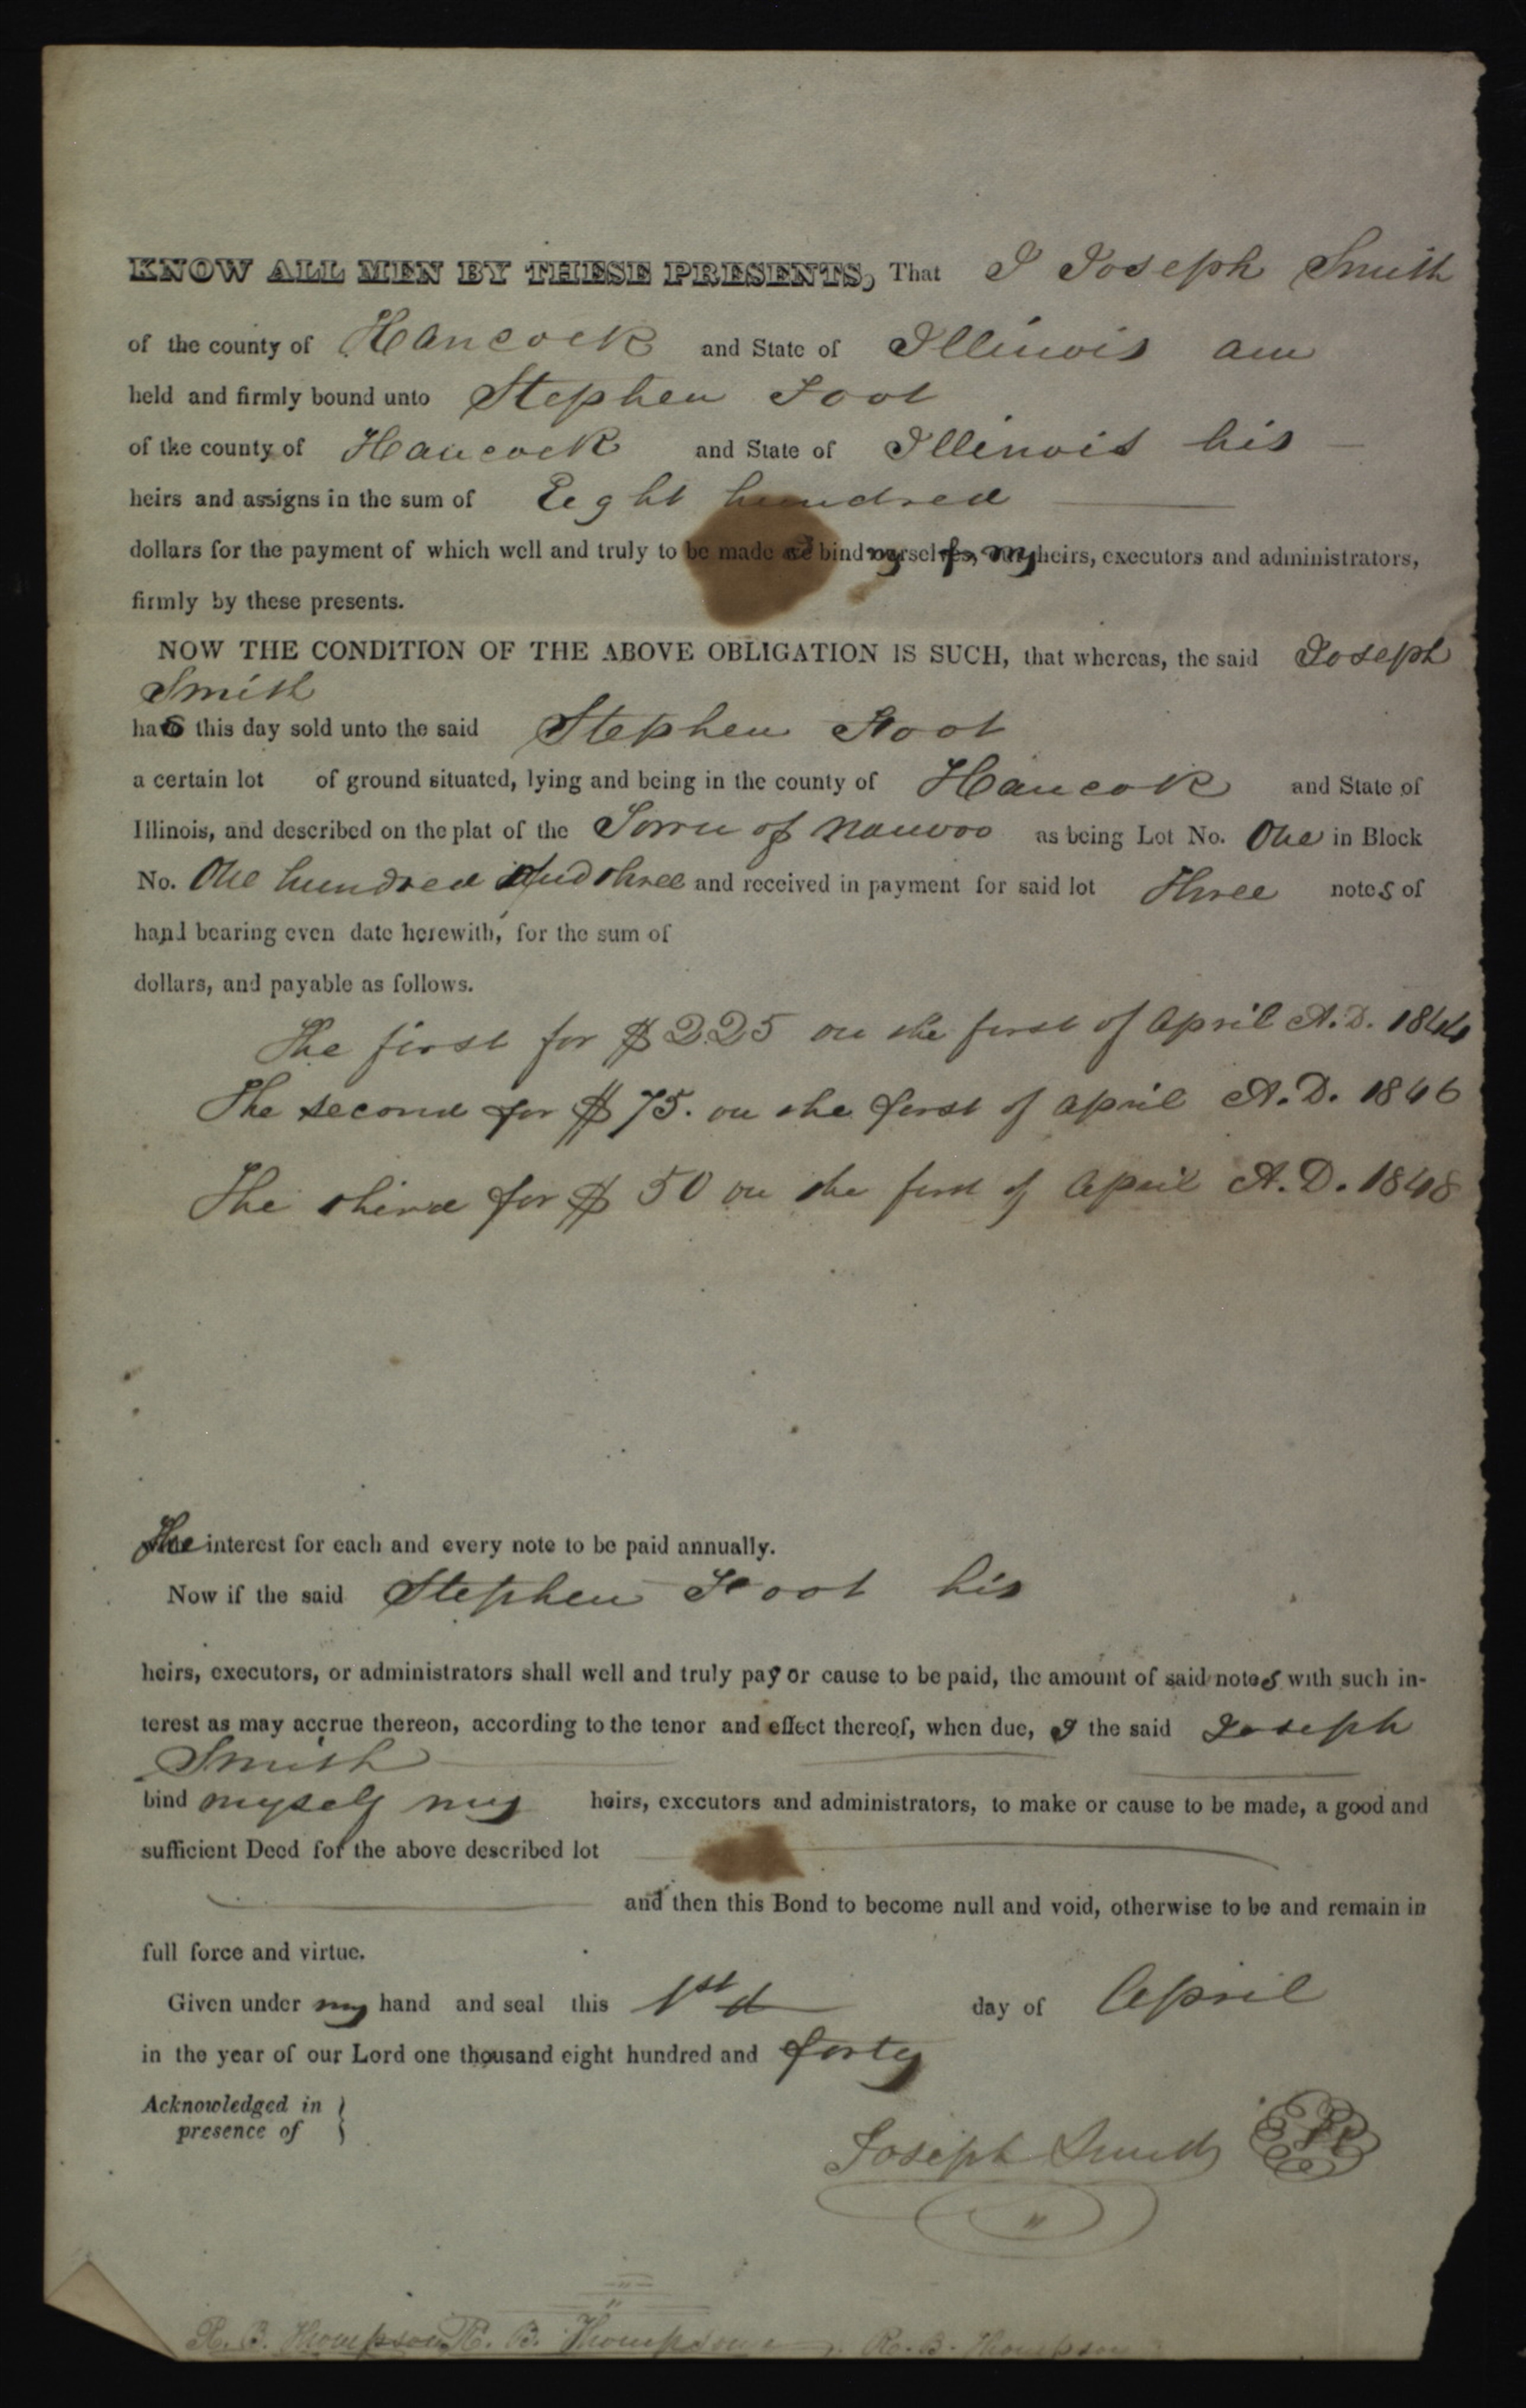 KNOW ALL MEN BY THESE PRESENTS, That I Joseph Smith
of the county of Hancock and State of Illinois am
held and firmly bound unto Stephen Foot
of the county of Hancock and State of Illinois his
heirs and assigns in the sum of Eight hundred
dollars for the payment of which well and truly to be made bind my self, my heirs, executors and administrators,
firmly by these presents.
NOW THE CONDITION OF THE ABOVE OBLIGATION IS SUCH, that whereas, the said Joseph
Smith
has this day sold unto the said Stephen Foot
a certain lot of ground situated, lying and being in the county of Hancock and State of
Illinois, and described on the plat of the Town of Nauvoo as being Lot No. One in Block
No. One hundred and three and received in payment for said lot Three notes of
hand bearing even date herewith, for the sum of
dollars, and payable as follows.
The first for $225 on the first of April A.D. 1844
The second for $75. on the first of April A.D. 1846
The third for $50 on the first of April A.D. 1848
The interest for each and every note to be paid annually.
Now if the said Stephen Foot his
heirs, executors, or administrators shall well and truly pay or cause to be paid, the amount of said notes with such in-
terest as may accrue thereon, according to the tenor and effect thereof, when due, I the said Joseph
Smith
bind myself my heirs, executors and administrators, to make or cause to be made, a good and
sufficient Deed for the above described lot
and then this Bond to become null and void, otherwise to be and remain in
full force and virtue.
Given under my hand and seal this 1st d day of April
in the year of our Lord one thousand eight hundred and forty
Acknowledged in
presence of
Joseph Smith
R. B. Thompson R. B. Thompson R. B. Thompson